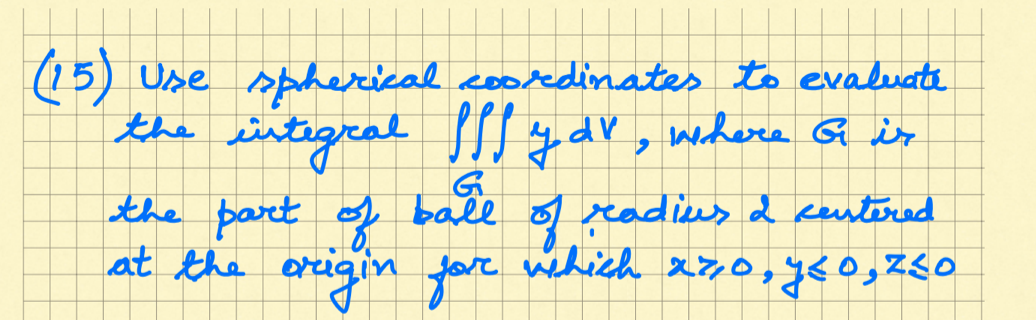 (15) Use spherical coordinates to evaluate
the integral ∭_G y dV, where G is
the part of ball of radius 2 centered
at the origin for which x≥0, y≤0, z≤0